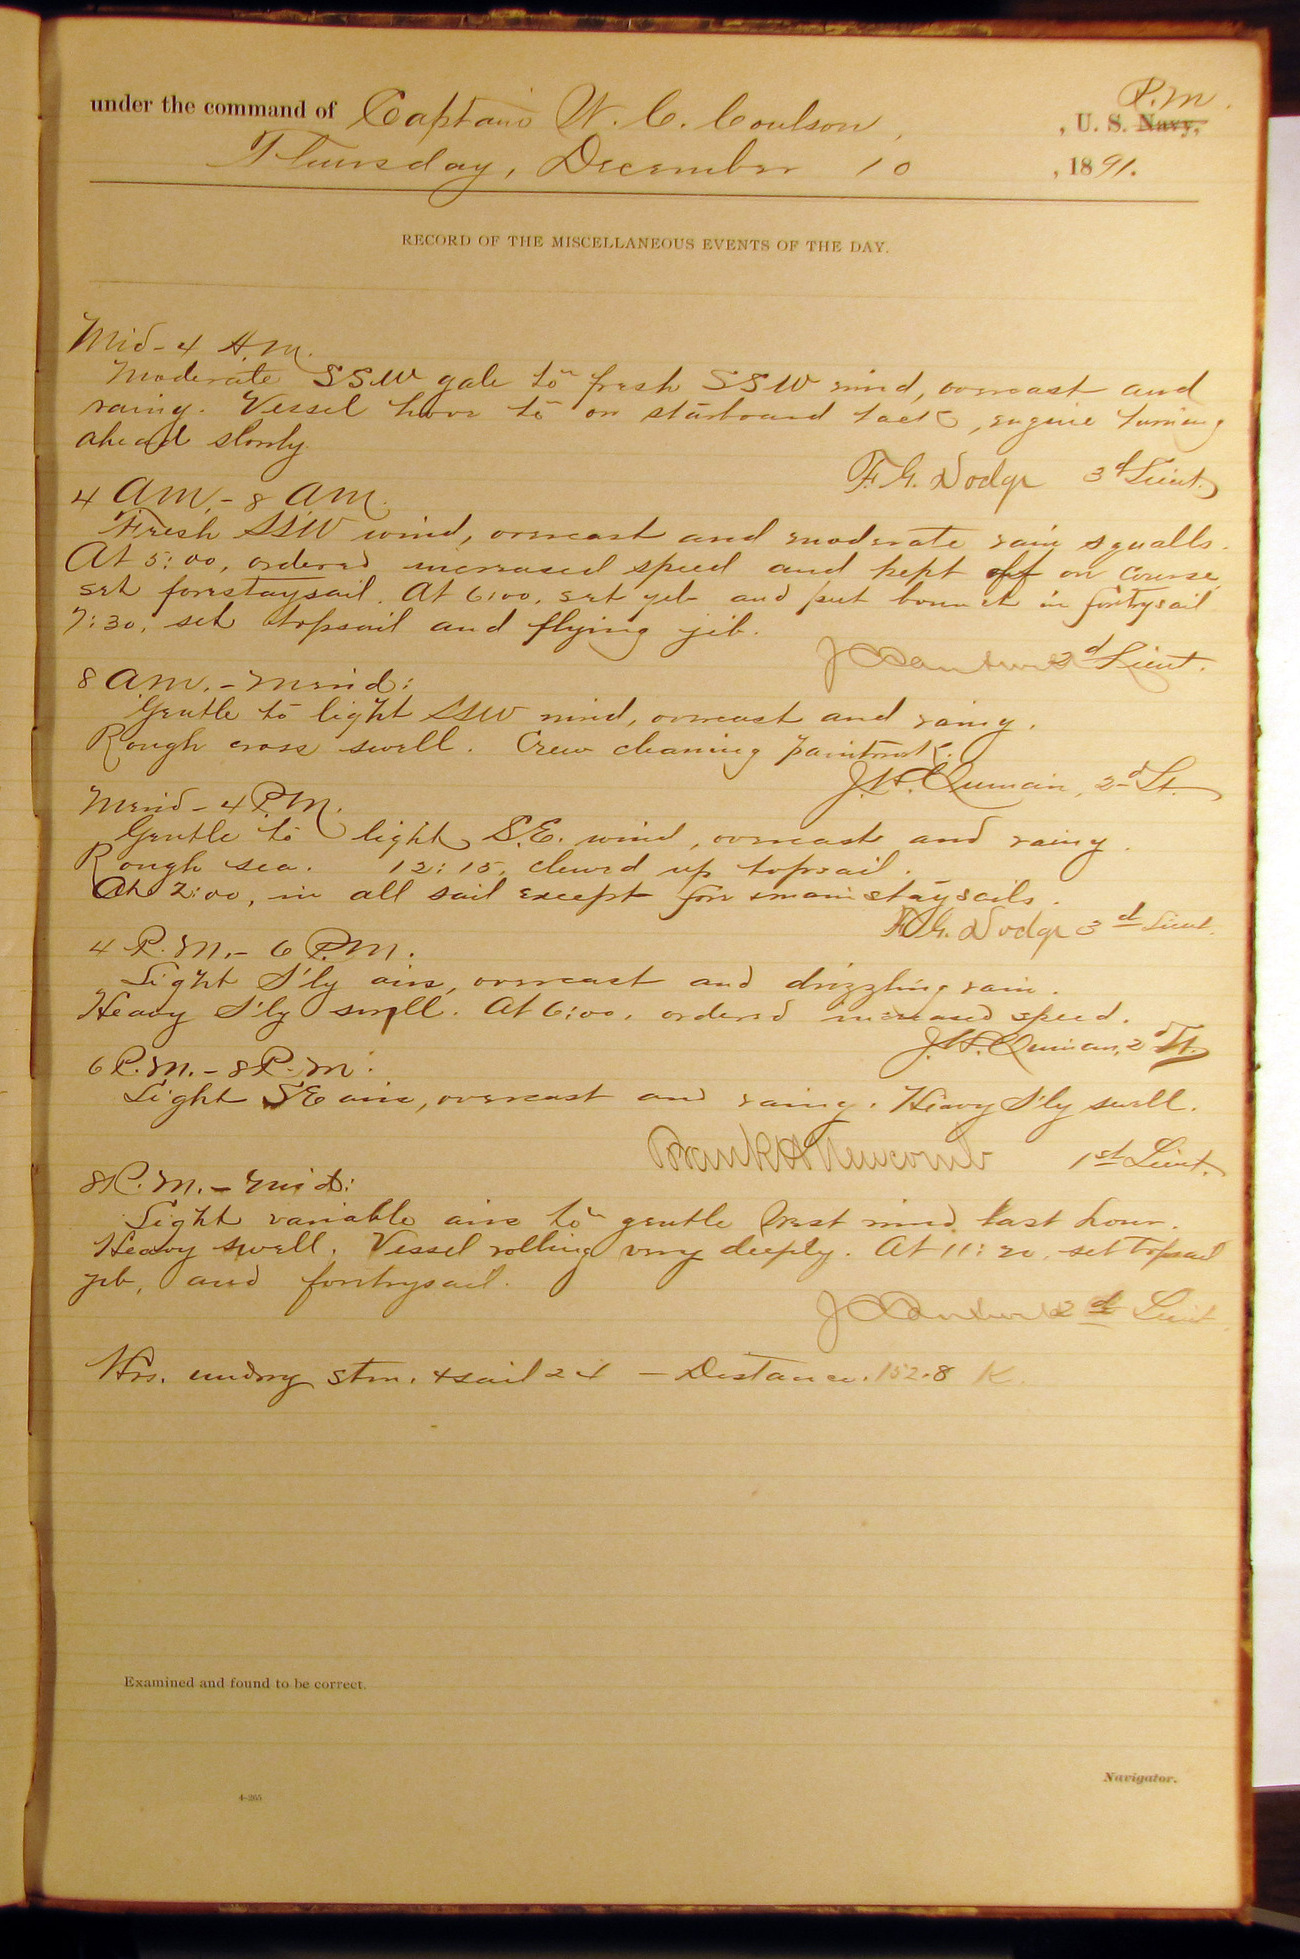 R.M.
under the command of Captain W. C. Coulson, , U. S. Navy,
Thursday, December 10 , 1891.
RECORD OF THE MISCELLANEOUS EVENTS OF THE DAY.
Mid - 4 A.M.
Moderate SSW gale to fresh SSW wind, overcast and
rainy. Vessel hove to on starboard tack, engine turning
ahead slowly
F. G. Dodge 3d Lieut.
4 AM. - 8 AM.
Fresh SSW wind, overcast and moderate rain squalls.
At 5:00, ordered increased speed and kept off on course,
set forestaysail. At 6:00, set jib and put bonnet in foretrysail
7:30, set topsail and flying jib.
2d Lieut.
8 A.M. - Merid:
Gentle to light SSW wind, overcast and rainy.
Rough cross swell. Crew cleaning paintwork.
J. H. Quinan, 2d Lt.
Merid - 4 P.M.
Gentle to light S.E. wind, overcast and rainy.
Rough sea. 12:15, clewed up topsail.
At 2:00, in all sail except staysails.
F. G. Dodge 3d Lieut.
4 P.M. - 6 P.M.
Light S'ly airs, overcast and drizzling rain.
Heavy S'ly swell. At 6:00, ordered increased speed.
J. H. Quinan, 2d Lt.
6 P.M. - 8 P.M.
Light SE airs, overcast and rainy. Heavy S'ly swell.
Frank H Newcomb 1st Lieut.
8 P.M. - Mid:
Light variable airs to gentle West wind last hour.
Heavy swell. Vessel rolling very deeply. At 11:20, set topsail
jib, and foretrysail.
2d Lieut
Hrs. under stm. & sail 24 - Distance. 152.8 K.
Examined and found to be correct.
Navigator.
4-265